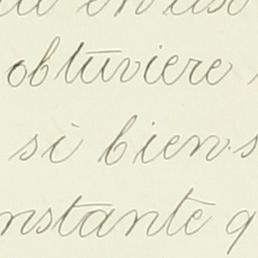 en uso
obtuviere
si bien s
nstante q